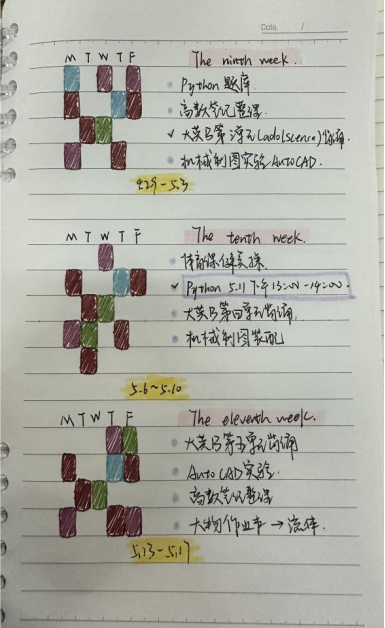 Date.    /
M T W T F
The ninth week.
Python 题库
高数笔记整理
大英B第 (adolscence)
机械制图实验 AutoCAD.
4.29-5.3
M T W T F
The tenth week.
体育保健
Python 5.11 下午13:00-14:00.
大英B第四单元背诵
机械制图装配
5.6~5.10
M T W T F
The eleventh week.
大英B第五单元背诵
AutoCAD实验
高数笔记整理
大物作业本 → 流体.
5.13-5.17